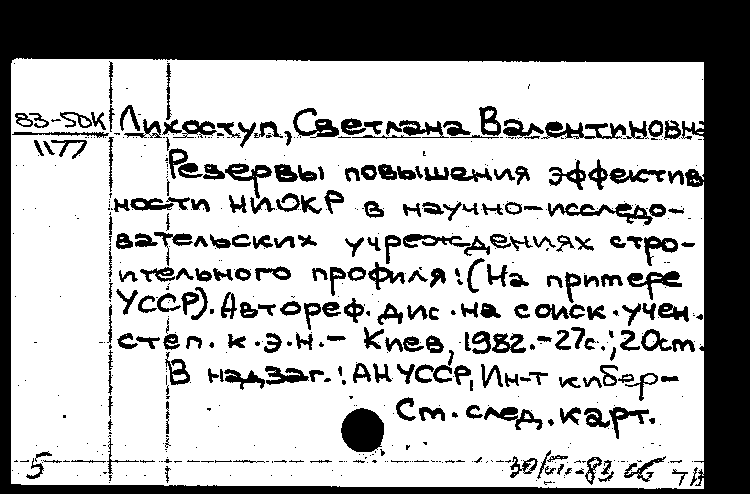 83-5DK Лихоступ, Светлана Валентиновна
1177
Резервы повышения эффектив
ности НИОКР в научно-исследо-
вательских учреждениях стро-
ительного профиля: (На примере
УССР). Автореф. дис. на соиск. учен.
степ. к.э.н. - Киев, 1982. - 27с.; 20см.
В надзаг.: АН УССР, Ин-т кибер-
См. след. карт.
5